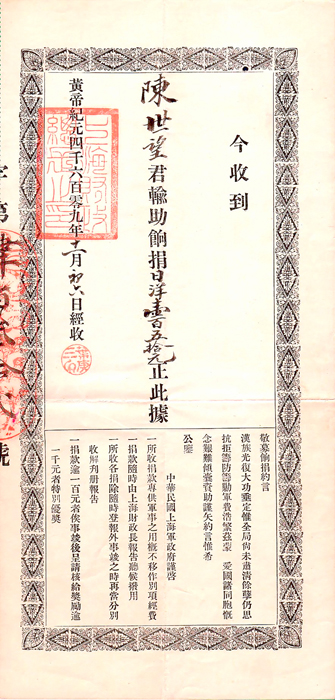 今收到
陳世望君輸助餉捐日洋壹百五拾元正此據
黃帝紀元四千六百零九年十一月初六日經收
敬募餉捐約言
漢族光復大功垂定惟全局尚未肅清餘孽仍思
抗拒籌防籌勦軍費浩繁茲蒙 愛國諸同胞慨
念艱難傾囊資助謹矢約言惟希
公鑒
中華民國上海軍政府謹啓
一所收捐款專供軍事之用概不移作別項經費
一捐款隨時由上海財政長報告聽候撥用
一所收各捐除隨時登報外事竣之時再當分別
收解刊册報告
一捐款逾一百元者俟事竣後呈請核給獎勵逾
一千元者特別優獎
字第肆百貳 貳號